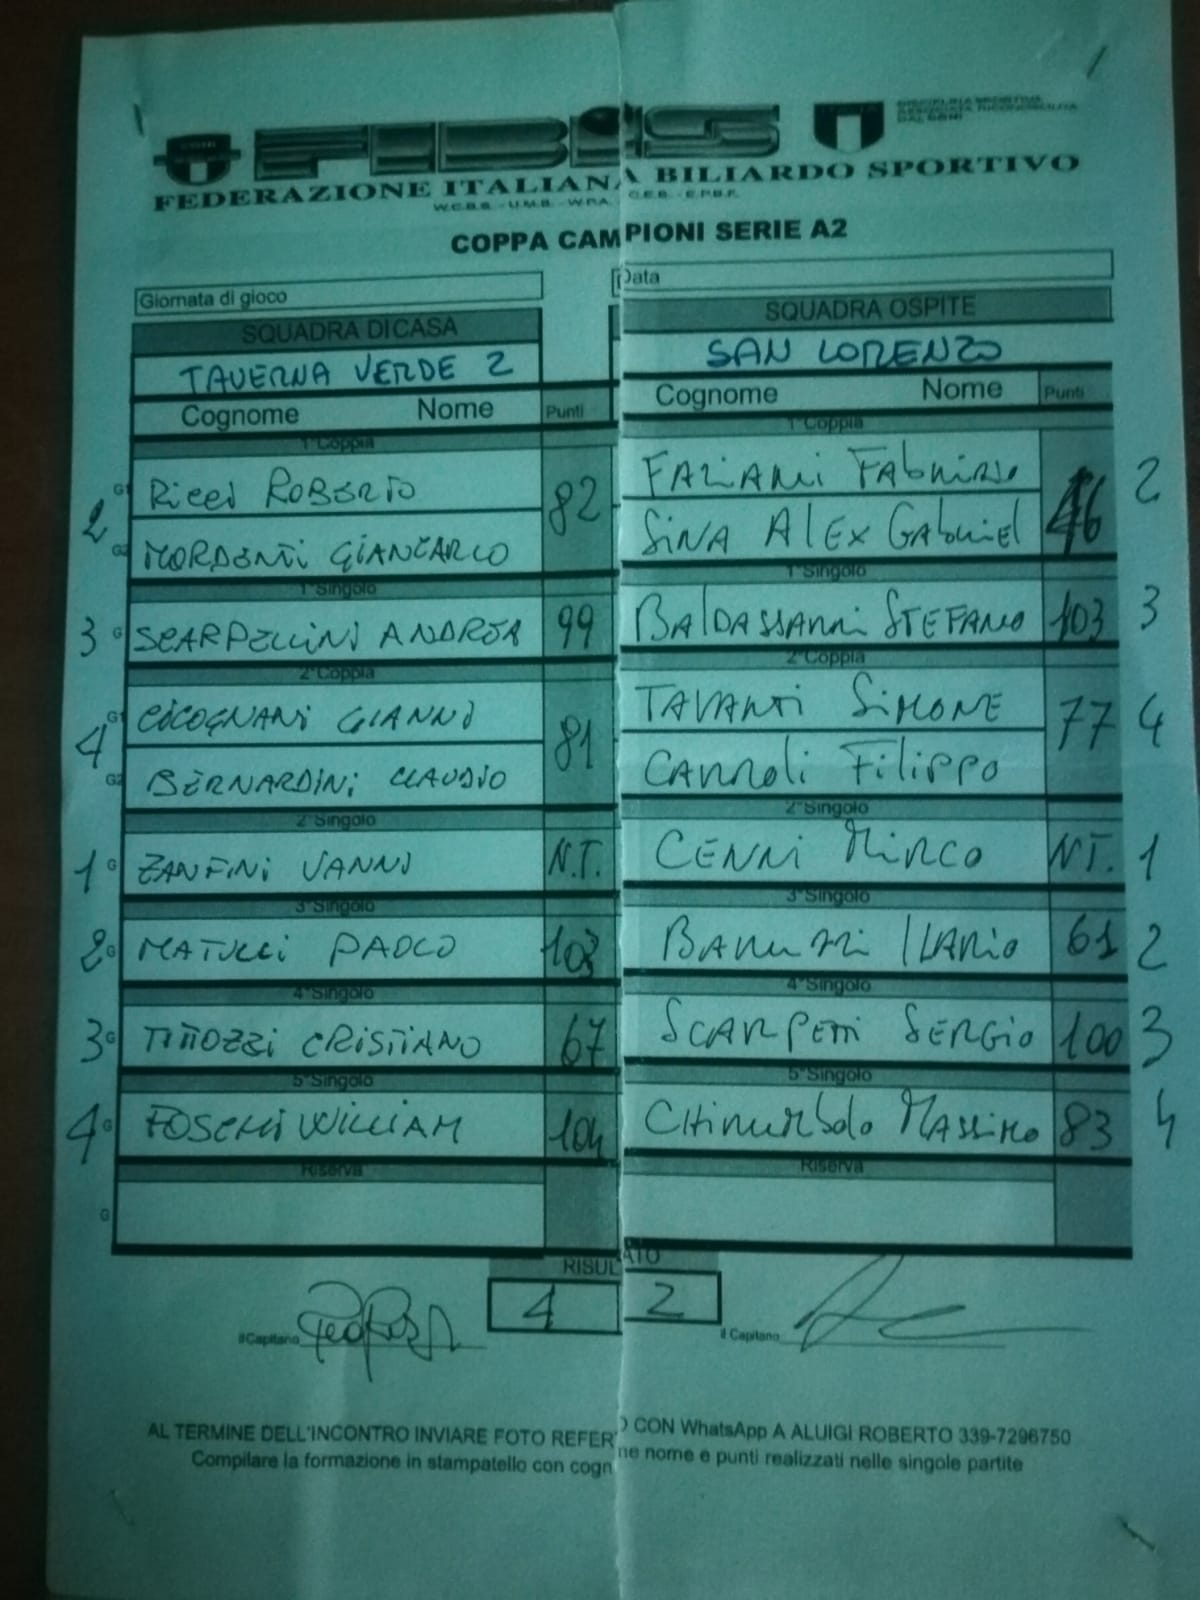 FIBIS
FEDERAZIONE ITALIANA BILIARDO SPORTIVO
COPPA CAMPIONI SERIE A2
Giornata di gioco
Data
SQUADRA DI CASA
SQUADRA OSPITE
TAVERNA VERDE 2
SAN LORENZO
Cognome Nome Punti
Cognome Nome Punti
1°Coppia
1°Coppia
2 G1 RICCI ROBERTO 82
G2 MORDENTI GIANCARLO
FAZIANI FABRIZIO 46 2
SINA ALEX GABRIEL
1°Singolo
1°Singolo
3 G SCARPELLINI ANDREA 99
BALDASSARRI STEFANO 103 3
2°Coppia
2°Coppia
4 G1 CICOGNANI GIANNI 81
G2 BERNARDINI CLAUDIO
TAVANTI SIMONE 77 4
CARROLI FILIPPO
2°Singolo
2°Singolo
1 G ZANFINI VANNI N.T.
CENNI MIRCO N.T. 1
3°Singolo
3°Singolo
2 G MATULLI PAOLO 103
BARUZZI ILARIO 61 2
4°Singolo
4°Singolo
3 G TITTOZZI CRISTIANO 67
SCARPETTI SERGIO 100 3
5°Singolo
5°Singolo
4 G FOSCHI WILLIAM 104
MASSIMO 83 4
Riserva
Riserva
G
RISULTATO
4 2
il Capitano
il Capitano
AL TERMINE DELL'INCONTRO INVIARE FOTO REFERTO CON WhatsApp A ALUIGI ROBERTO 339-7296750
Compilare la formazione in stampatello con cogn ne nome e punti realizzati nelle singole partite